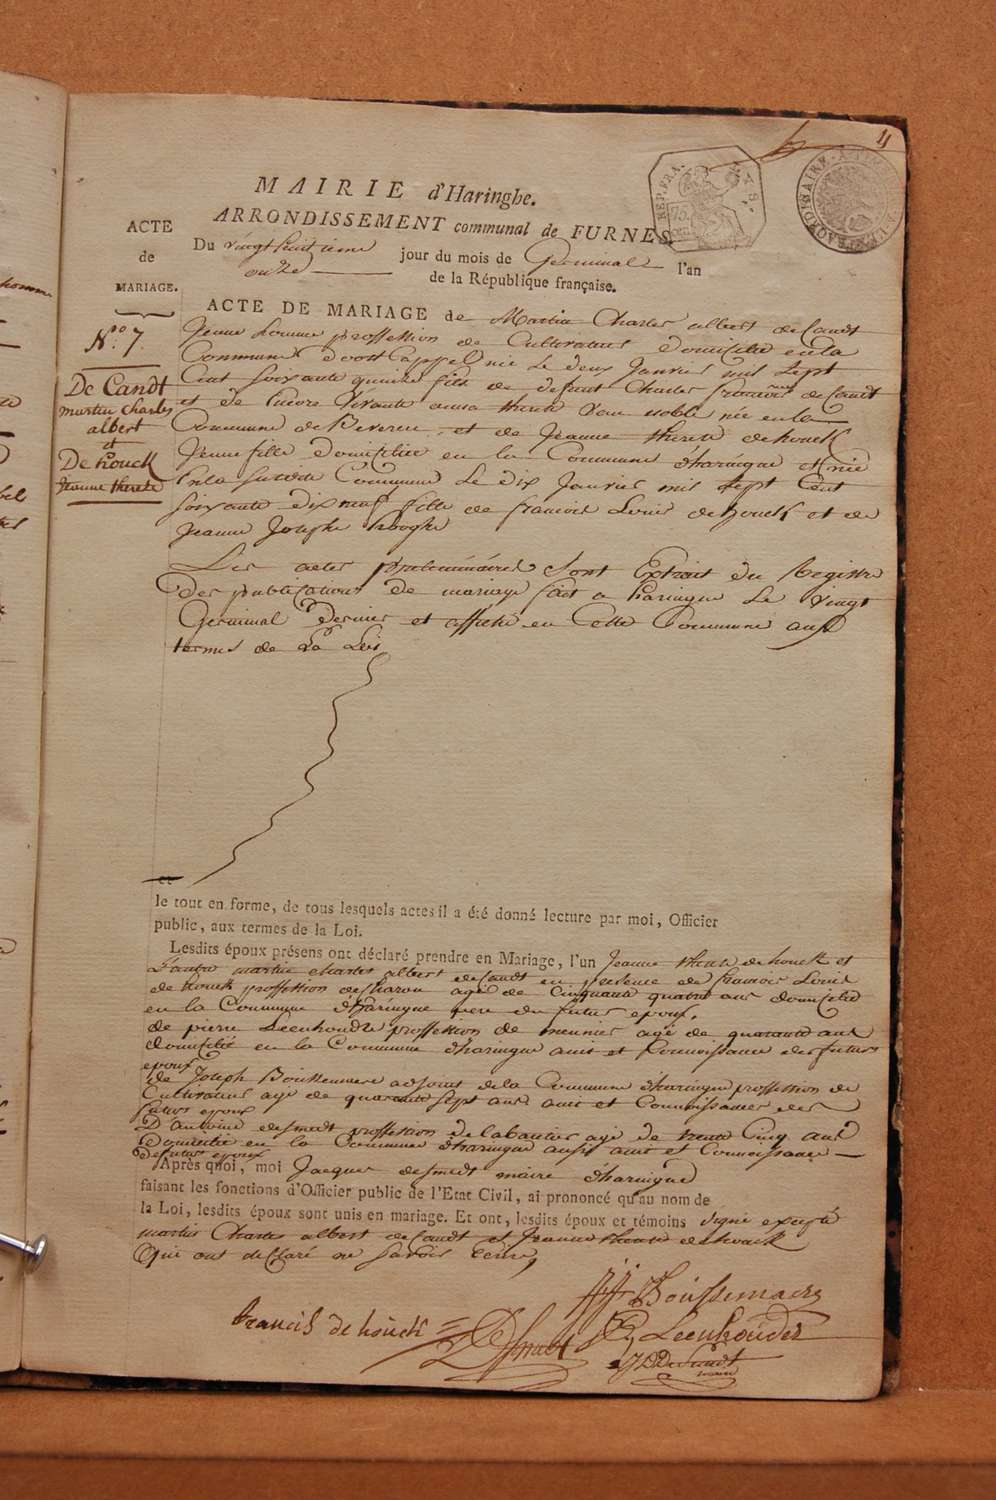 4
MAIRIE d'Haringhe.
ARRONDISSEMENT communal de FURNES
ACTE
de
MARIAGE.
Du vingt huitieme jour du mois de Germinal l'an
onze de la République française.
N.º 7.
De Candt
martin charles
albert
et
De houck
Jeanne therese
ACTE DE MARIAGE de Martin Charles albert de Candt
Jeune homme proffession de Cultivateur Domicilié en la
Commune d'oostCappel né le deux Janvier mil Sept
Cent Soixante quinze fils de defunt Charles francois de Candt
et de encore vivante anna therese van noble née en la
Commune de Reveren et de Jeanne therese de houck
Jeune fille Domiciliée en la Commune d'haringue et née
en la susdite Commune Le dix Janvier mil Sept Cent
Soixante dix neuf fille de francois Louis de houck et de
Jeanne Josephe hooghe
Les actes preliminaires Sont Extrait du Registre
Des publications de mariage fait a haringue Le vingt
Germinal Dernier et affiché en Cette Commune aux
termes de La Loi
et
le tout en forme, de tous lesquels actes il a été donné lecture par moi, Officier
public, aux termes de la Loi.
Lesdits époux présens ont déclaré prendre en Mariage, l'un Jeanne therese de houck et
L'autre martin charles albert de Candt en presence de francois Louis
de houck proffession de charon agé de Cinquante quatre ans domicilié
en la Commune d'haringue pere du futur epoux.
de pierre Leenhoudre proffession de meunier agé de quarante ans
domicilié en la Commune d'haringue ami et Connoissance des futurs
epoux
de Joseph Boussemaere adjoint de la Commune d'haringue proffession de
Cultivateur agé de quarante sept ans ami et Connoissance des
futurs epoux
D'antoine desmedt proffession de labautier agé de trente Cinq ans
Domicilié en la Commune d'haringue aussi ami et Connoissance
des futurs epoux
Après quoi, moi Jacques desmedt maire d'haringue
faisant les fonctions d'Officier public de l'Etat Civil, ai prononcé qu'au nom de
la Loi, lesdits époux sont unis en mariage. Et ont, lesdits époux et témoins signé excepté
martin Charles albert de Candt et Jeanne therese de houck
Qui ont declaré ne savoir Ecrire,
Boussemaere
francis de houck
Leenhouder